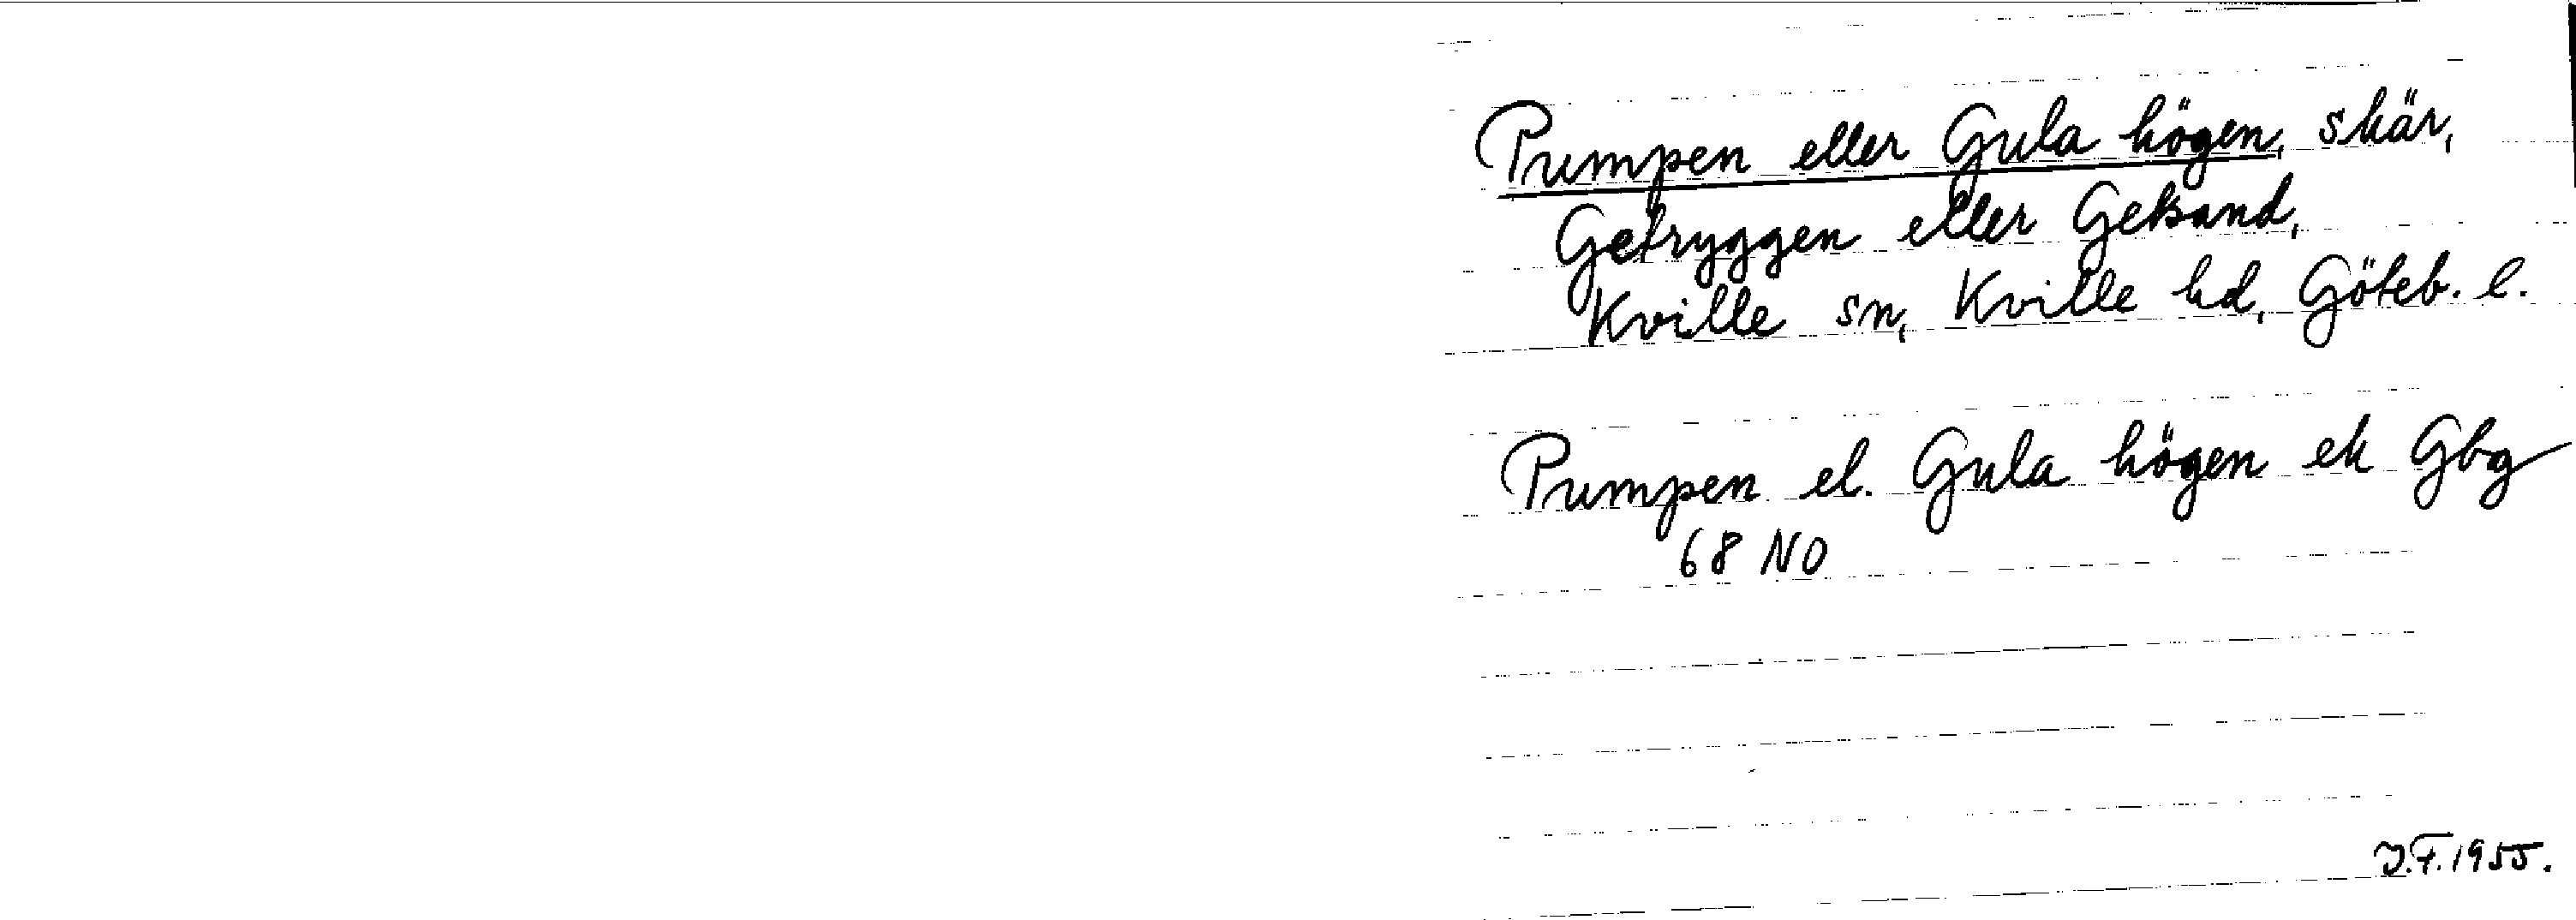 Pumpen eller Gula högen, skär,
Getryggen eller Getsand,
Kville sn, Kville hd, Göteb. l.
Pumpen el. Gula högen ek Gbg
68 NO
J.F. 1955.